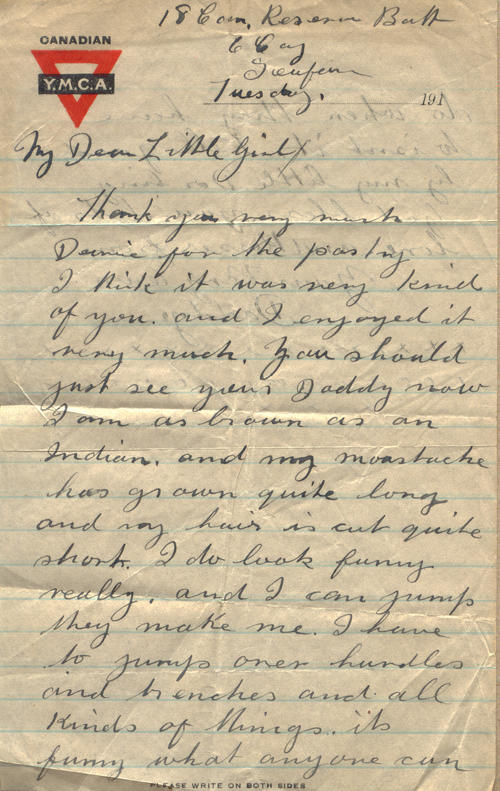 18 Can. Reserve Batt
C Coy
Seaford
CANADIAN
Y.M.C.A.
Tuesday. 191
My Dear Little Girl
Thank you very much
Dearie for the pastry
I think it was very kind
of you. and I enjoyed it
very much. You should
just see your Daddy now
I am as brown as an
Indian. and my moustache
has grown quite long
and my hair is cut quite
short. I do look funny
really. and I can jump
they make me. I have
to jump over hurdles
and trenches and all
kinds of things. its
funny what anyone can
PLEASE WRITE ON BOTH SIDES